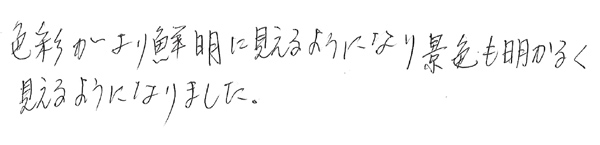 色彩がより鮮明に見えるようになり景色も明かるく
見えるようになりました。